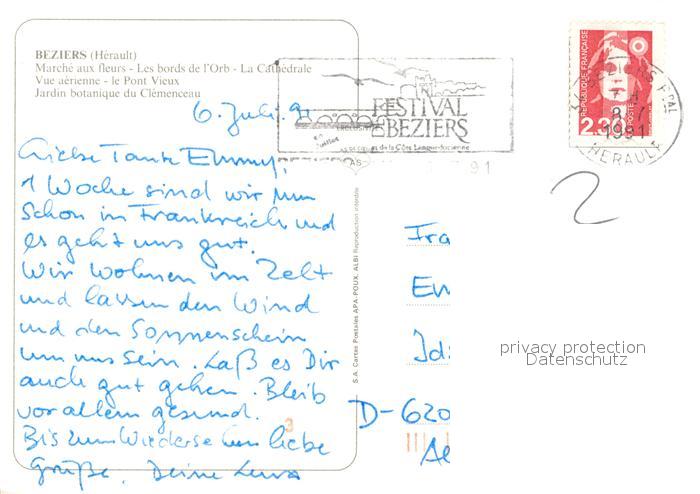 BEZIERS (Hérault)
Marché aux fleurs - Les bords de l'Orb - La Cathédrale
Vue aérienne - le Pont Vieux
Jardin botanique du Clémenceau
6. Juli 91
Liebe Tante Emmy,
1 Woche sind wir nun
schon in Frankreich und
es geht uns gut.
Wir wohnen im Zelt
und lassen den Wind
und den Sonnenschein
um uns sein. Laß es Dir
auch gut gehen. Bleib
vor allem gesund.
Bis zum Wiedersehen liebe
Grüße, Deine
S.A. Cartes Postales APA-POUX, ALBI Reproduction interdite
FESTIVAL
BEZIERS
91
RÉPUBLIQUE FRANÇAISE
2,30
POSTES
BEZIERS PPAL
1991
HERAULT
2
Fra
Em
D-620
3
privacy protection
Datenschutz